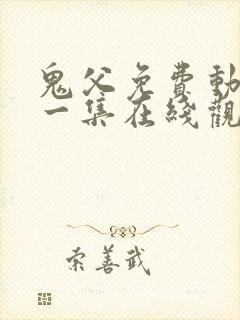 鬼父免費動
一集在綫觀
索善武